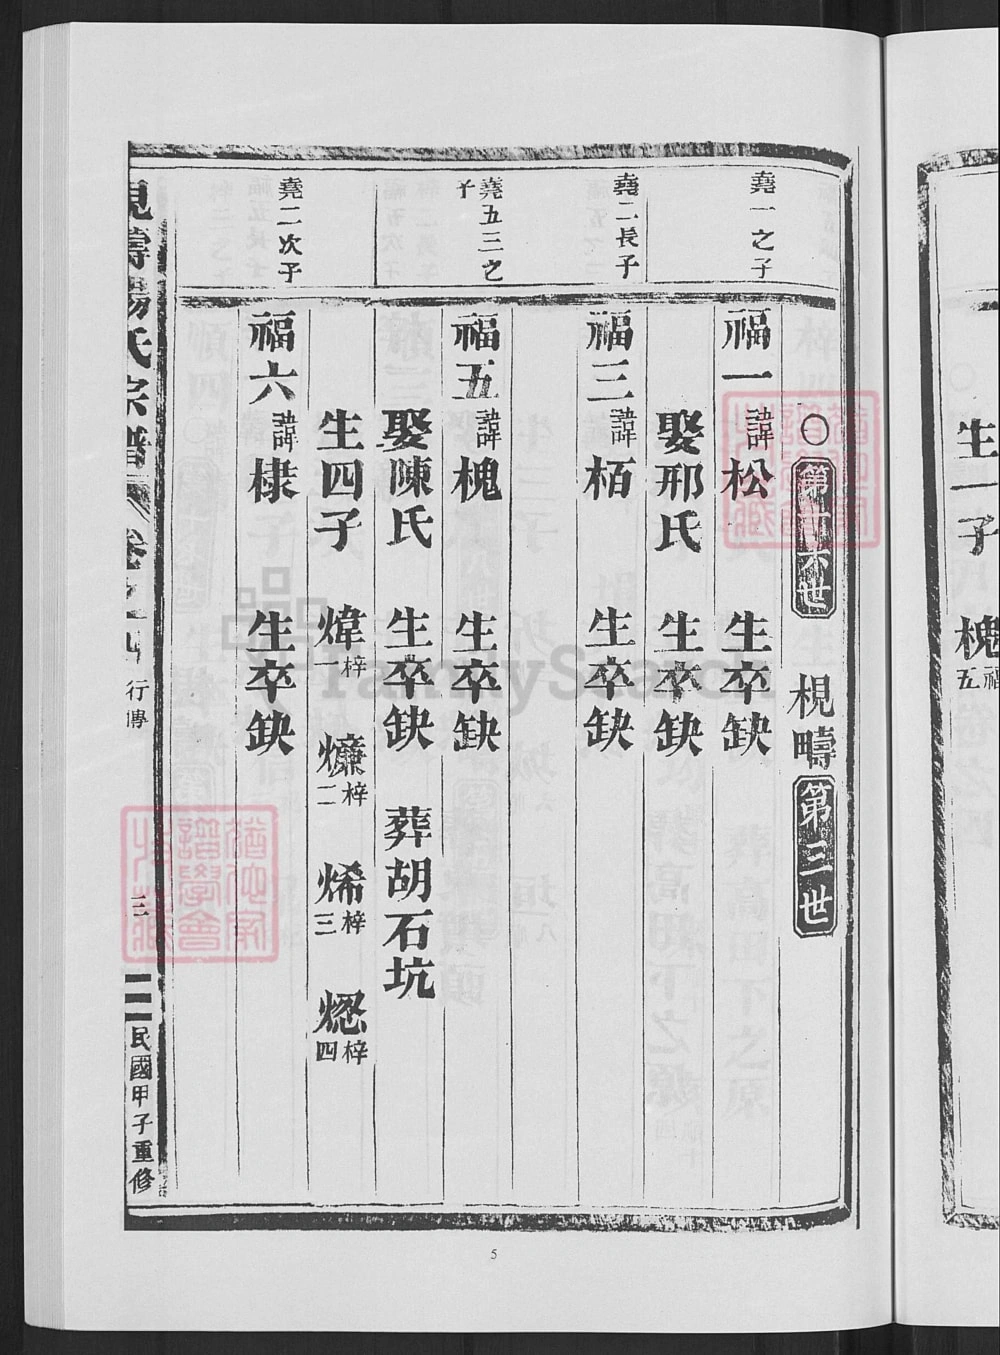 生一子 槐福五
○第十六世 梘疇第三世
堯一之子
福一諱松 生卒缺
娶邢氏 生卒缺
堯二長子
福三諱栢 生卒缺
堯五三之子
福五諱槐 生卒缺
娶陳氏 生卒缺 葬胡石坑
生四子 煒梓一 爌梓二 烯梓三 熜梓四
堯二次子
福六諱棣 生卒缺
梘疇楊氏宗譜 卷之四 行傳 三 民國甲子重修
5
FamilySearch